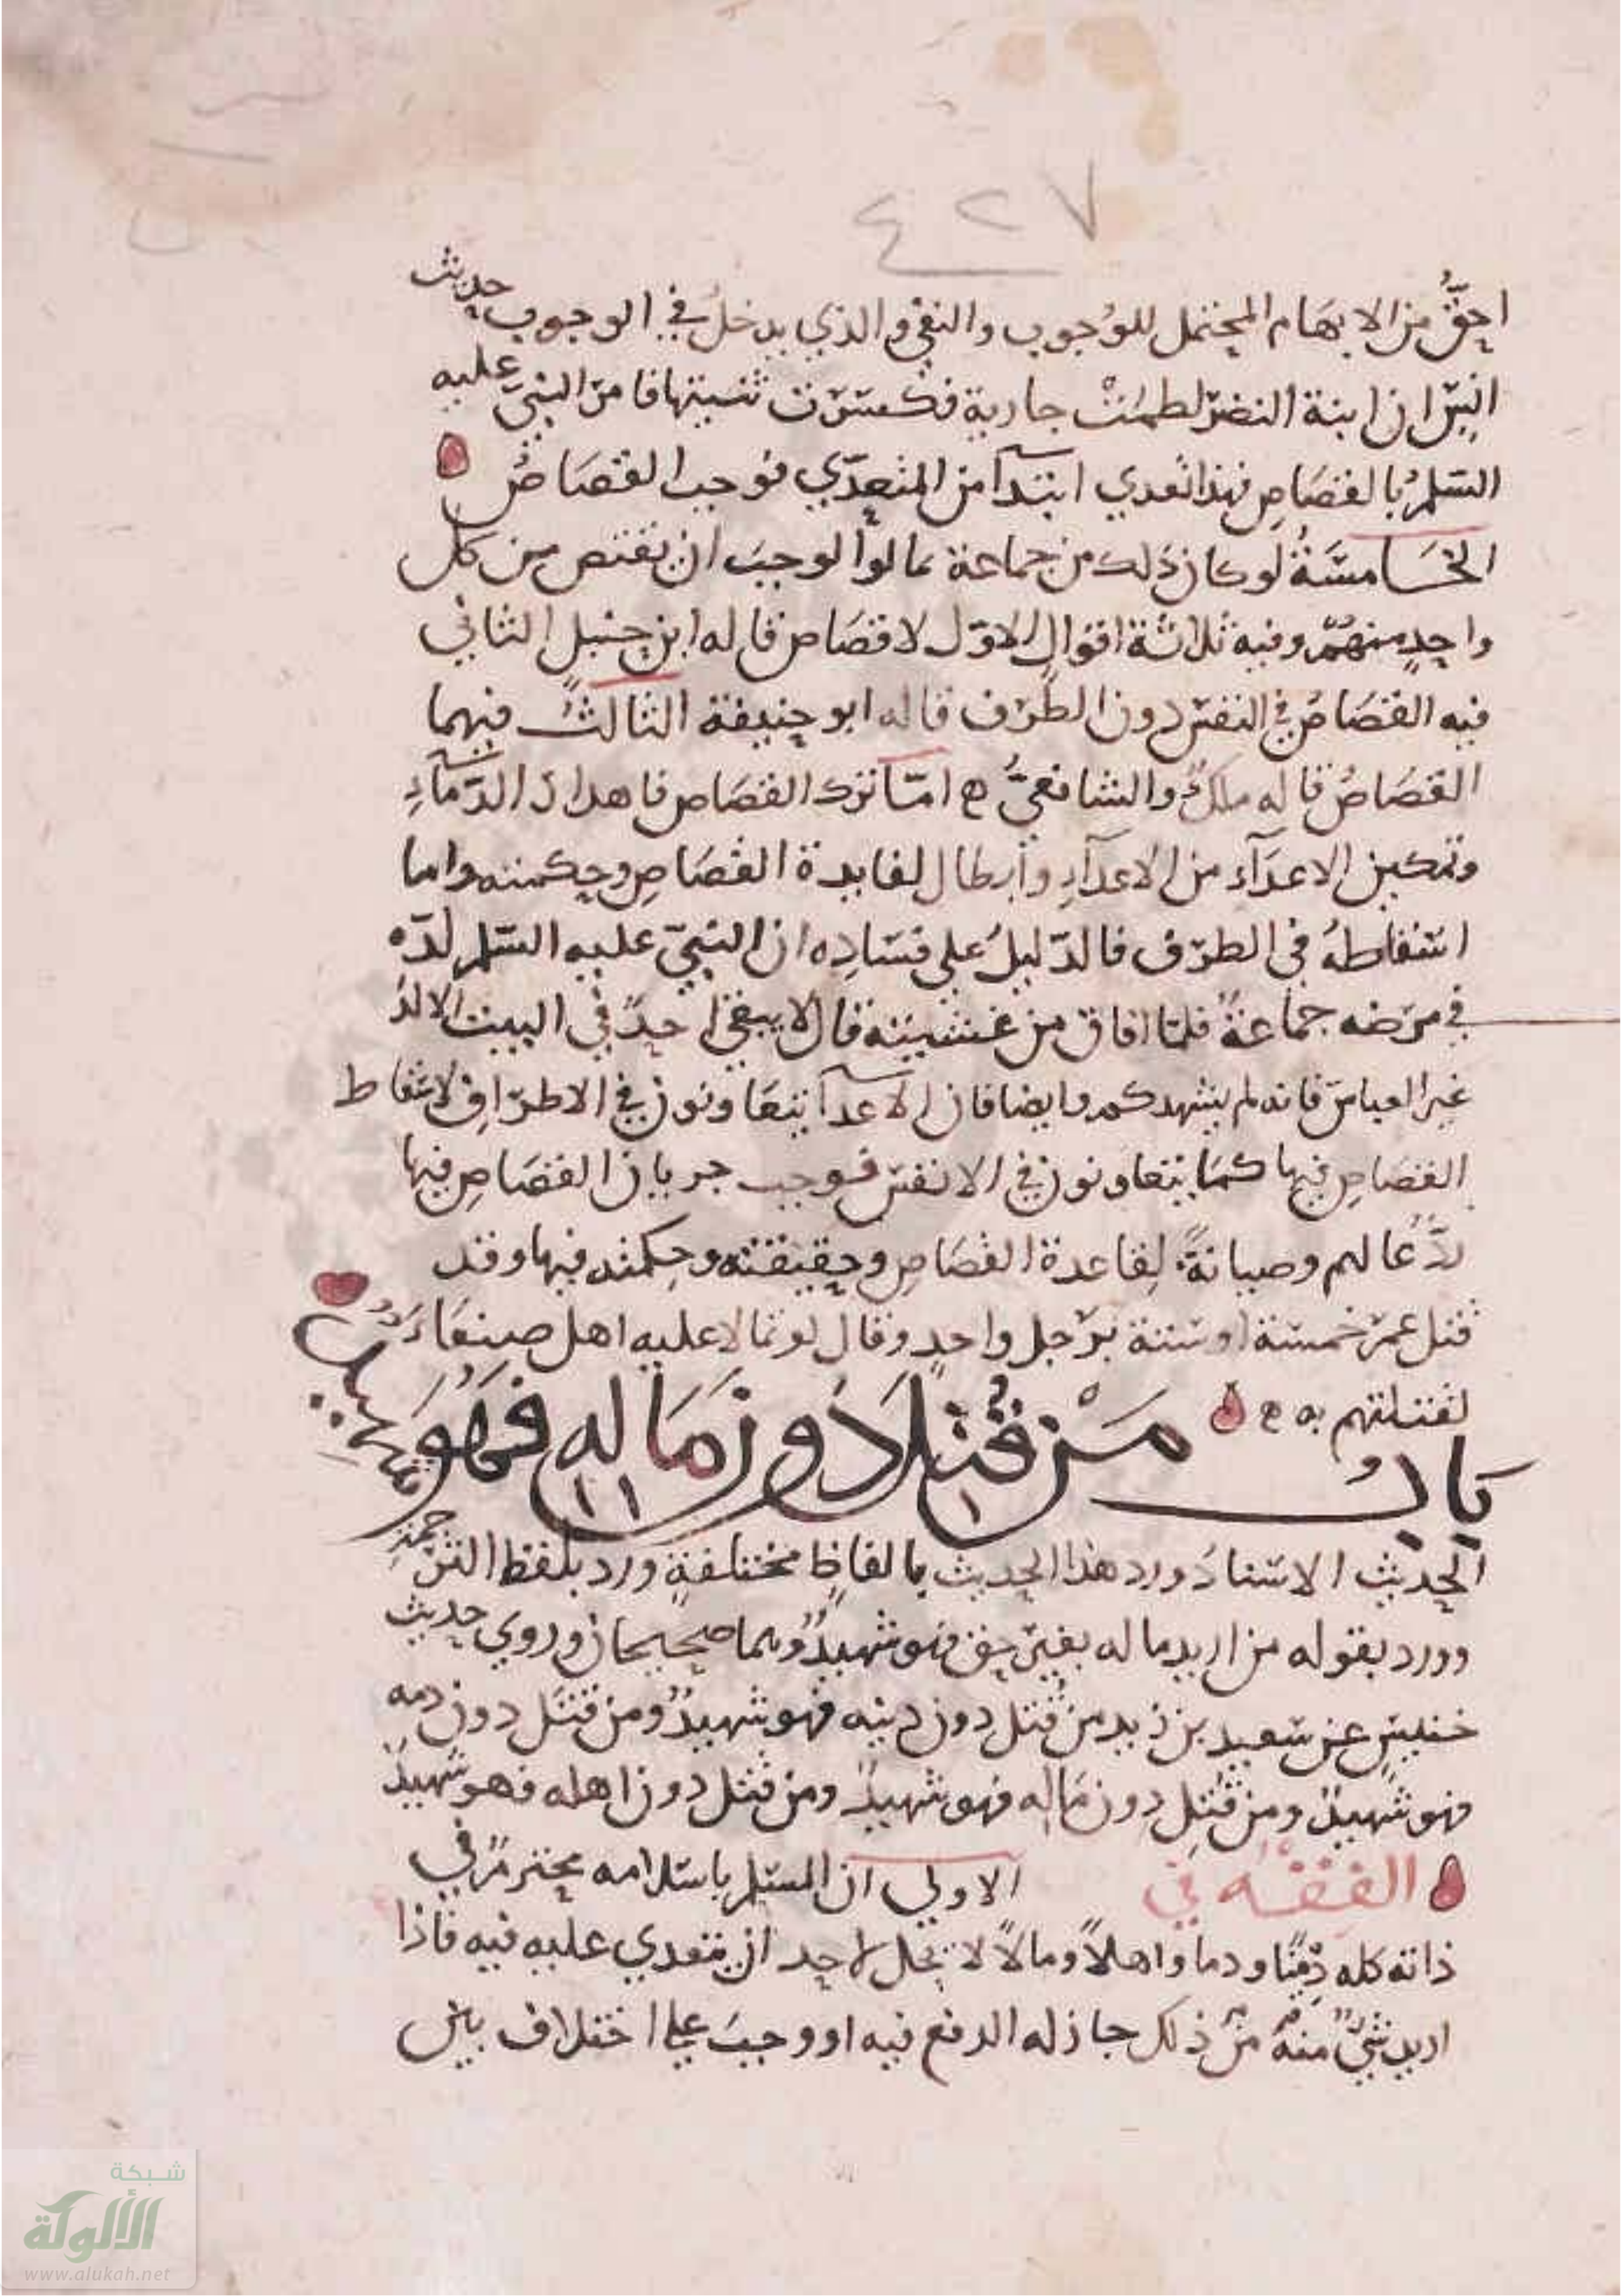 ٤٢٧
احق من الابهام المحتمل للوجوب والنفي والذي يدخل في الوجوب حديث
انس ان ابنة النضر لطمت جارية فكسرت ثنيتها فامر النبي عليه
السلم بالقصاص فهذا تعدي ابتدآ من المتعدي فوجب القصاص
الخامسة لو كان ذلك من جماعة تمالوا لوجب ان يقتص من كل
واحد منهم وفيه ثلاثة اقوال الاول لا قصاص قاله ابن حنبل الثاني
فيه القصاص في النفس دون الطرف قاله ابو حنيفة الثالث فيهما
القصاص قاله ملك والشافعي ه اما ترك القصاص فاهدار الدماء
وتمكين الاعدآء من الاعدآء وابطال لفايدة القصاص وحكمته واما
اسقاطه في الطرف فالدليل على فساده ان النبي عليه السلم لده
في مرضه جماعة فلما افاق من غشيته قال لا يبقى احد في البيت الا لد
غير العباس فانه لم يشهدكم وايضا فان الاعدآ يتعاونون في الاطراف لاسقاط
القصاص فيها كما يتعاونون في الانفس فوجب جريان القصاص فيها
ردعا لهم وصيانة لقاعدة القصاص وحقيقته وحكمته فيها وقد
قتل عمر خمسة او ستة برجل واحد وقال لو تمالا عليه اهل صنعاء
لقتلتهم به ه
باب من قتل دون ماله فهو شهيد
الحديث الاسناد ورد هذا الحديث بالفاظ مختلفة ورد بلفظ الترجمة
وورد بقوله من اريد ماله بغير حق فهو شهيد وهما صحيحان وروي حديث
خنيس عن سعيد بن زيد من قتل دون دينه فهو شهيد ومن قتل دون دمه
فهو شهيد ومن قتل دون ماله فهو شهيد ومن قتل دون اهله فهو شهيد
الفقه في الاولى ان المسلم باسلامه محترم في
ذاته كله دينا ودما واهلا ومالا لا يحل لاحد ان يتعدي عليه فيه فاذا
اريد شيء منه من ذلك جاز له الدفع فيه او وجب على اختلاف بين
شبكة
الألوكة
www.alukah.net